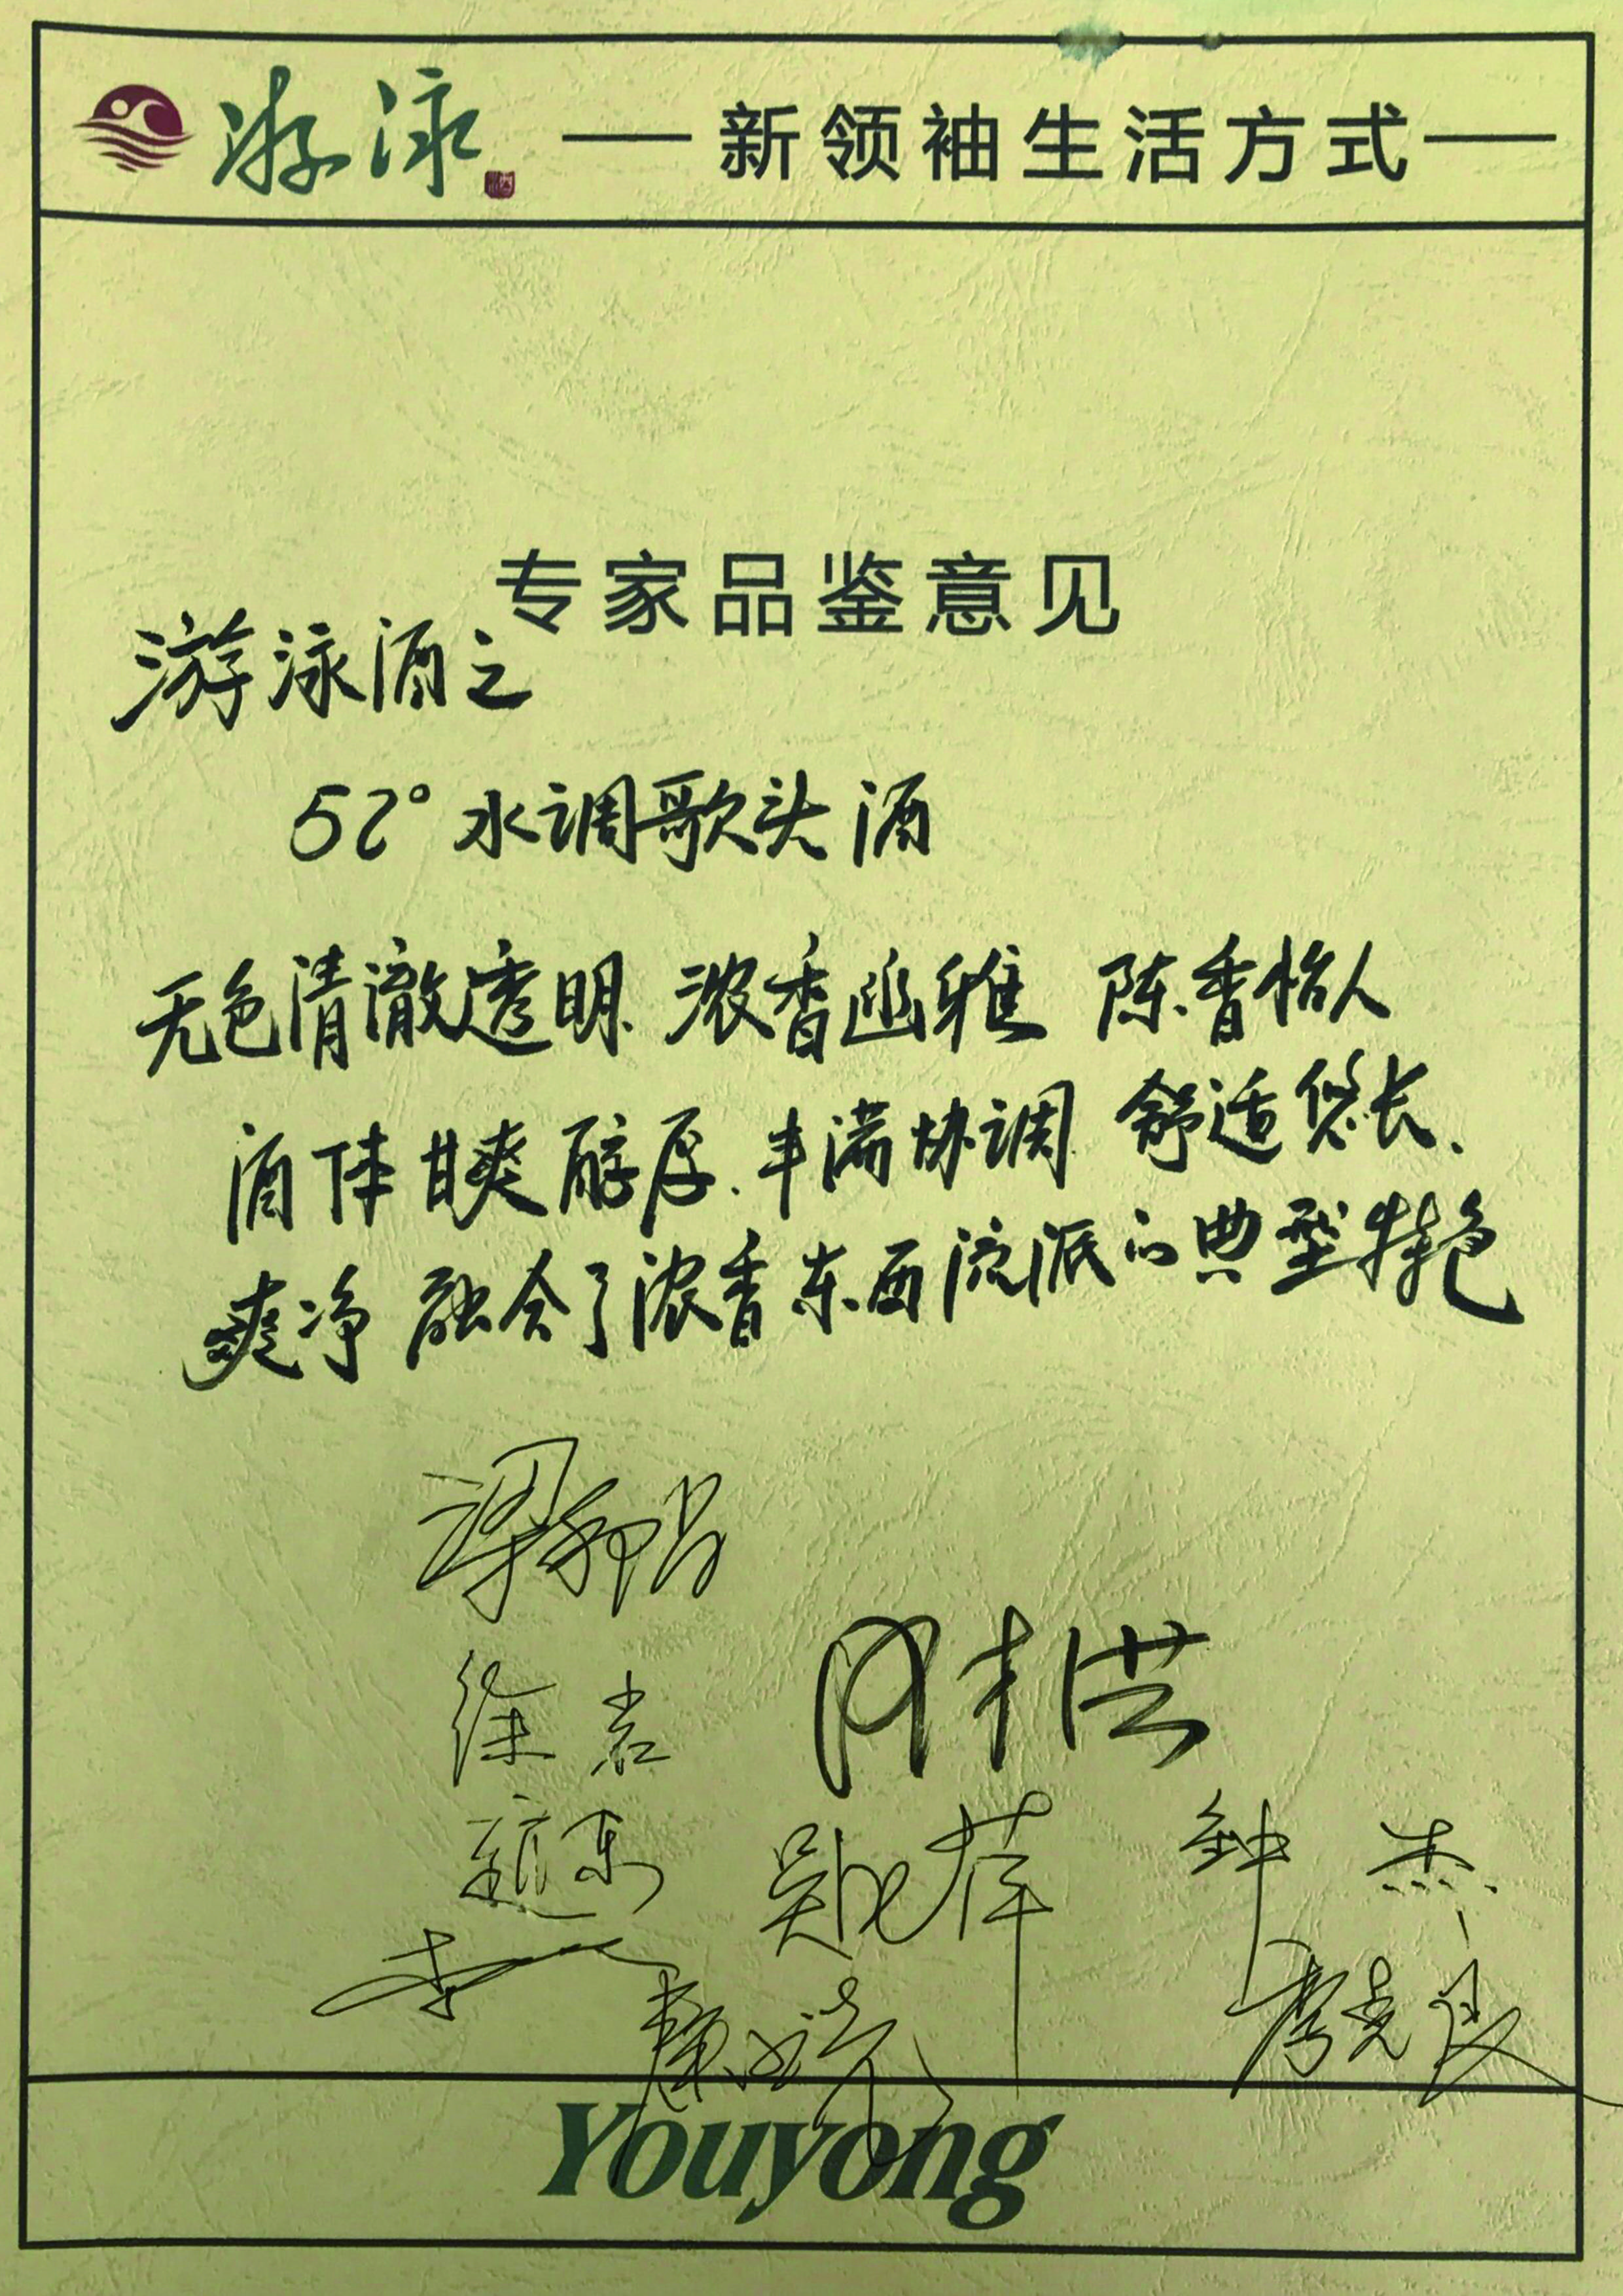 游泳 新领袖生活方式
专家品鉴意见
游泳酒之
52°水调歌头酒
无色清澈透明、浓香幽雅 陈香怡人
酒体甘爽醇厚、丰满协调 舒适悠长、
爽净 融合了浓香东西流派的典型特色
徐岩
钟杰
Youyong